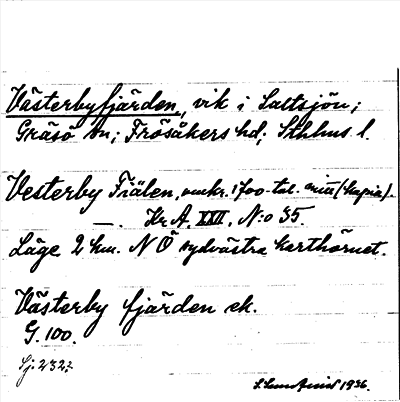 Västerbyfjärden, vik i Saltsjön;
Gräsö sn; Frösåkers hd; Sthlms l.
Vesterby Fiälen, omkr. 1700-tal. (kopia).
—. Kr.A. XXII, N:o 35.
Läge 2 km. N Ö sydvästra karthörnet.
Västerby fjärden ek.
G. 100.
Sj. 232
1936.